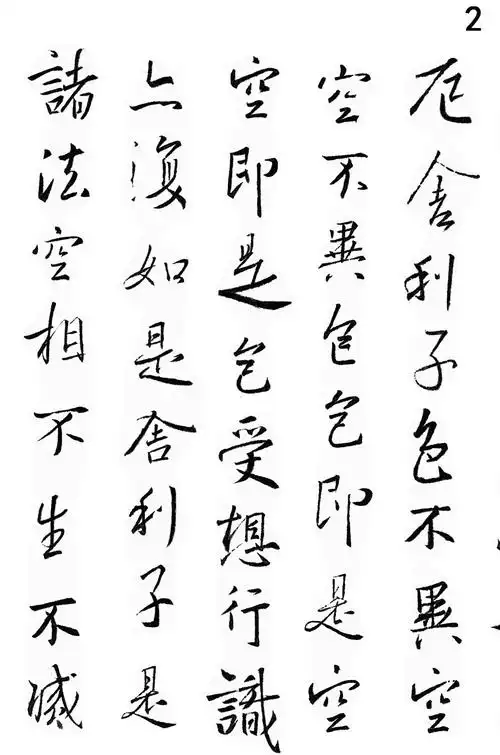 2
厄舍利子色不異空
空不異色色即是空
空即是色受想行識
亦復如是舍利子是
諸法空相不生不滅